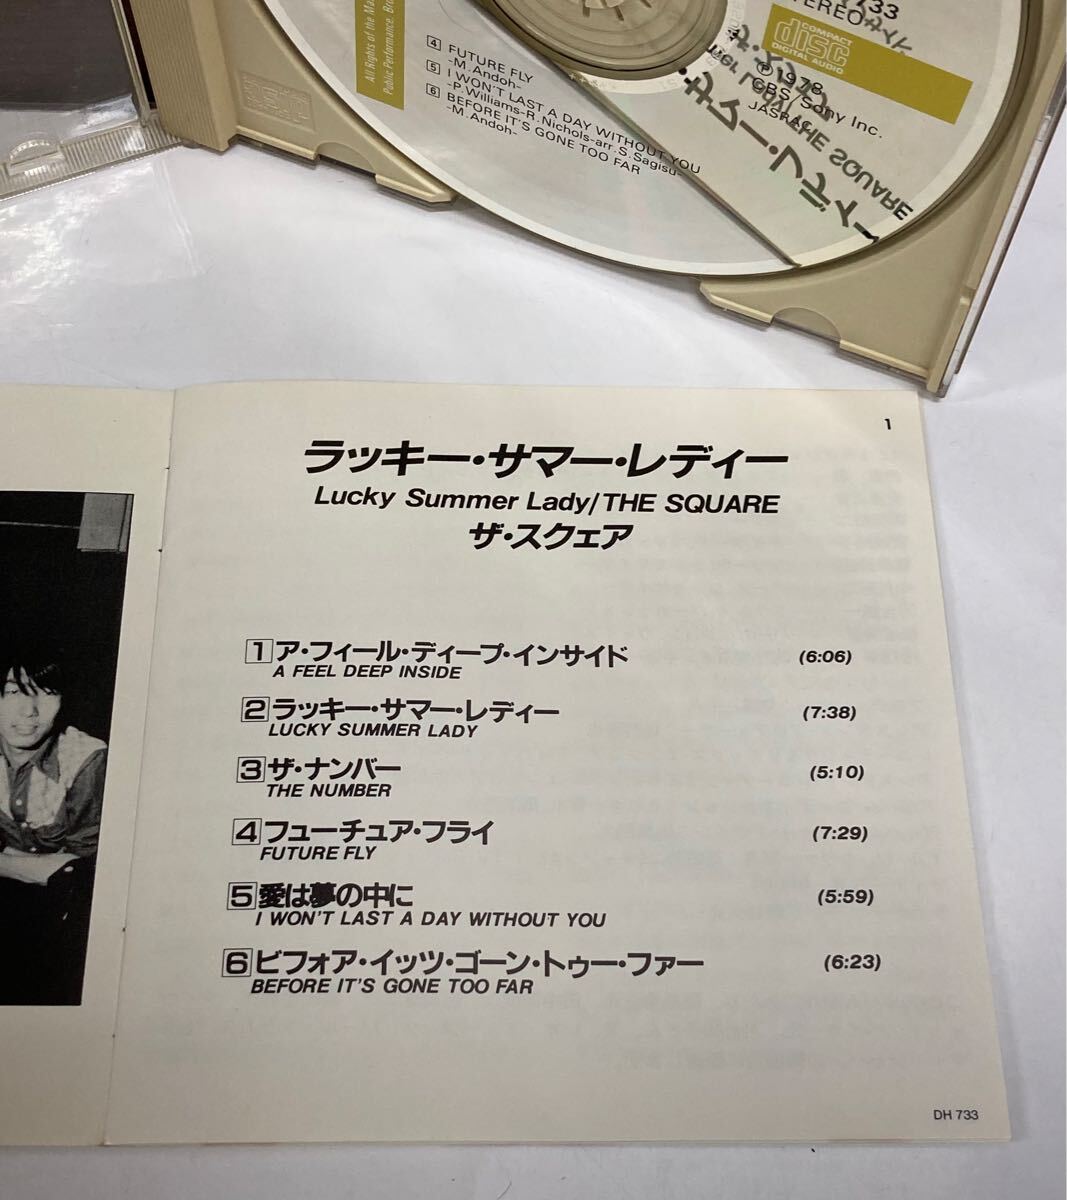 All Rights of the Ma
Public Performance. Bro
4 FUTURE FLY
-M. Andoh-
5 I WON'T LAST A DAY WITHOUT YOU
-P. Williams-R. Nichols-arr. S. Sagisu-
6 BEFORE IT'S GONE TOO FAR
-M. Andoh-
733
STEREO
COMPACT
disc
DIGITAL AUDIO
Ⓟ 1978
CBS/Sony Inc.
JASRAC
THE SQUARE
1
ラッキー・サマー・レディー
Lucky Summer Lady/THE SQUARE
ザ・スクェア
1 ア・フィール・ディープ・インサイド (6:06)
A FEEL DEEP INSIDE
2 ラッキー・サマー・レディー (7:38)
LUCKY SUMMER LADY
3 ザ・ナンバー (5:10)
THE NUMBER
4 フューチュア・フライ (7:29)
FUTURE FLY
5 愛は夢の中に (5:59)
I WON'T LAST A DAY WITHOUT YOU
6 ビフォア・イッツ・ゴーン・トゥー・ファー (6:23)
BEFORE IT'S GONE TOO FAR
DH 733